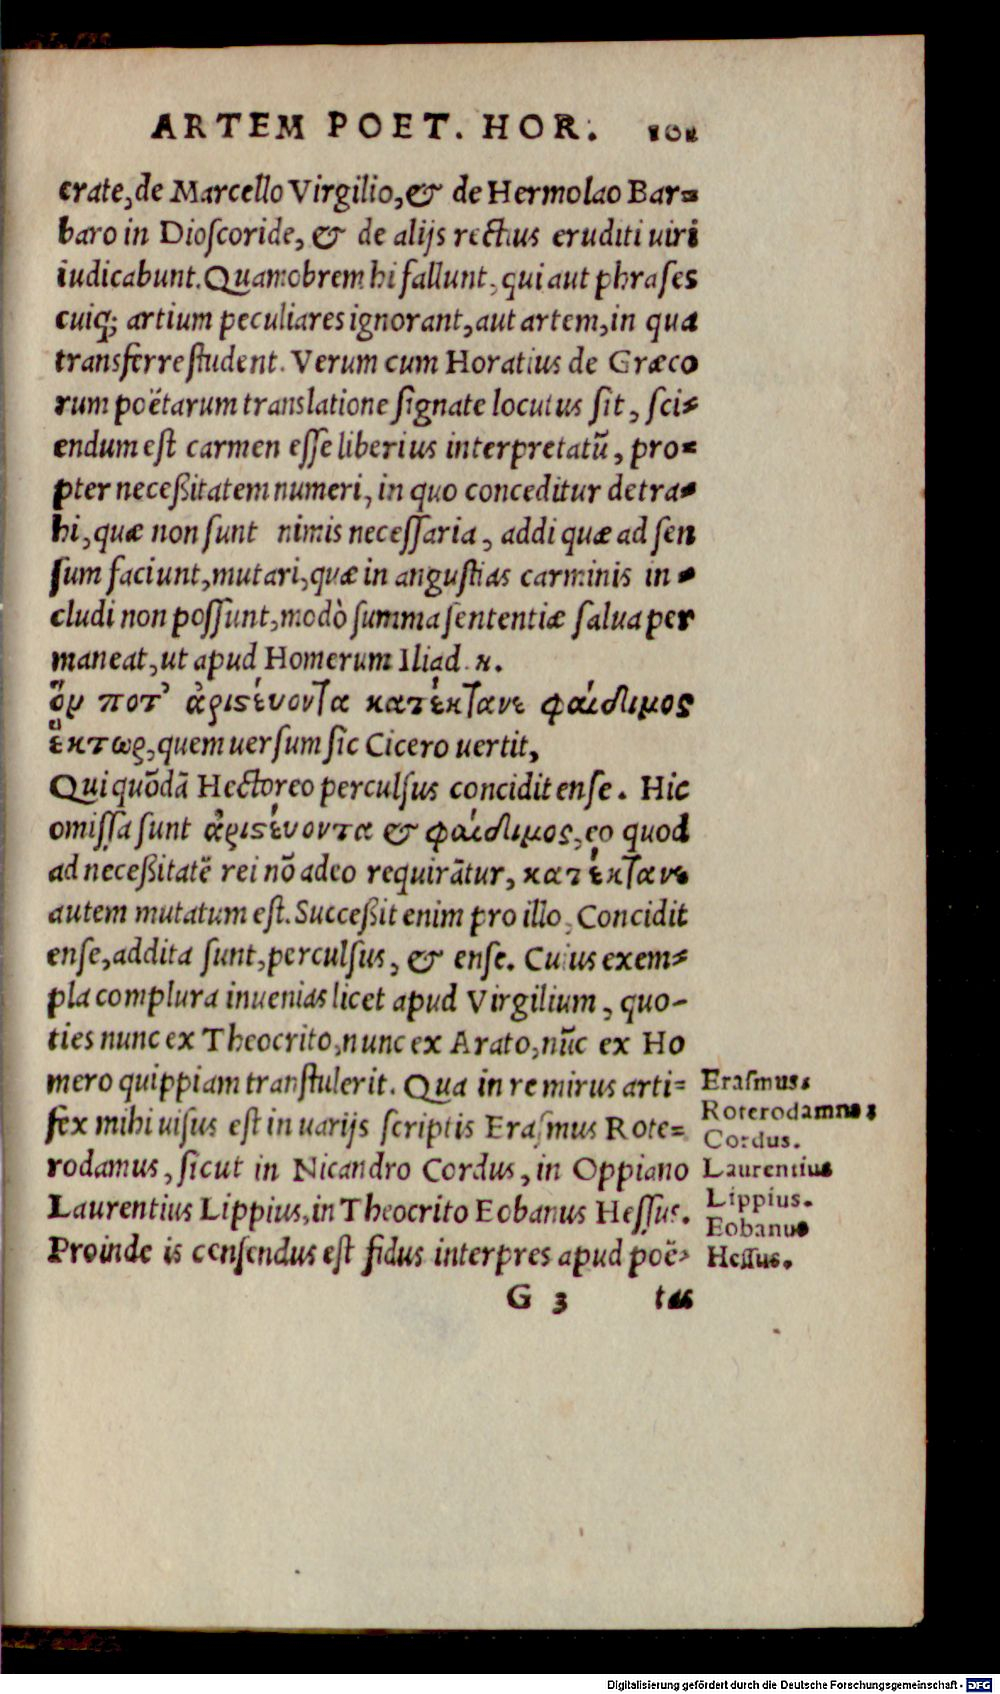 ARTEM POET. HOR. 101
crate, de Marcello Virgilio, & de Hermolao Bar=
baro in Dioſcoride, & de alijs rectius eruditi uiri
iudicabunt. Quamobrem hi fallunt, qui aut phraſes
cuiq; artium peculiares ignorant, aut artem, in qua
transferre ſtudent. Verum cum Horatius de Græco
rum poëtarum translatione ſignate locutus ſit, ſci=
endum eſt carmen eſſe liberius interpretatũ, pro=
pter neceßitatem numeri, in quo conceditur detra=
hi, quæ non ſunt nimis neceſſaria, addi quæ ad ſen
ſum faciunt, mutari, quæ in anguſtias carminis in=
cludi non poſſunt, modò ſumma ſententiæ ſalua per
maneat, ut apud Homerum Iliad. κ.
ὅν ποτ' ἀριϛέυοντα κατέκτανε φαίδιμος
ἕκτωρ, quem uerſum ſic Cicero uertit,
Qui quõdã Hectoreo perculſus concidit enſe. Hic
omiſſa ſunt ἀριϛέυοντα & φαίδιμος, eo quod
ad neceßitatẽ rei nõ adeo requirãtur, κατέκτανε
autem mutatum eſt. Succeßit enim pro illo, Concidit
enſe, addita ſunt, perculſus, & enſe. Cuius exem=
pla complura inuenias licet apud Virgilium, quo-
ties nunc ex Theocrito, nunc ex Arato, nũc ex Ho
mero quippiam tranſtulerit. Qua in re mirus arti=
fex mihi uiſus eſt in uarijs ſcriptis Eraſmus Rote=
rodamus, ſicut in Nicandro Cordus, in Oppiano
Laurentius Lippius, in Theocrito Eobanus Heſſus.
Proinde is cenſendus eſt fidus interpres apud poë=
Eraſmus.
Roterodamus.
Cordus.
Laurentius
Lippius.
Eobanus
Heſſus.
G 3 tas
Digitalisierung gefördert durch die Deutsche Forschungsgemeinschaft - DFG